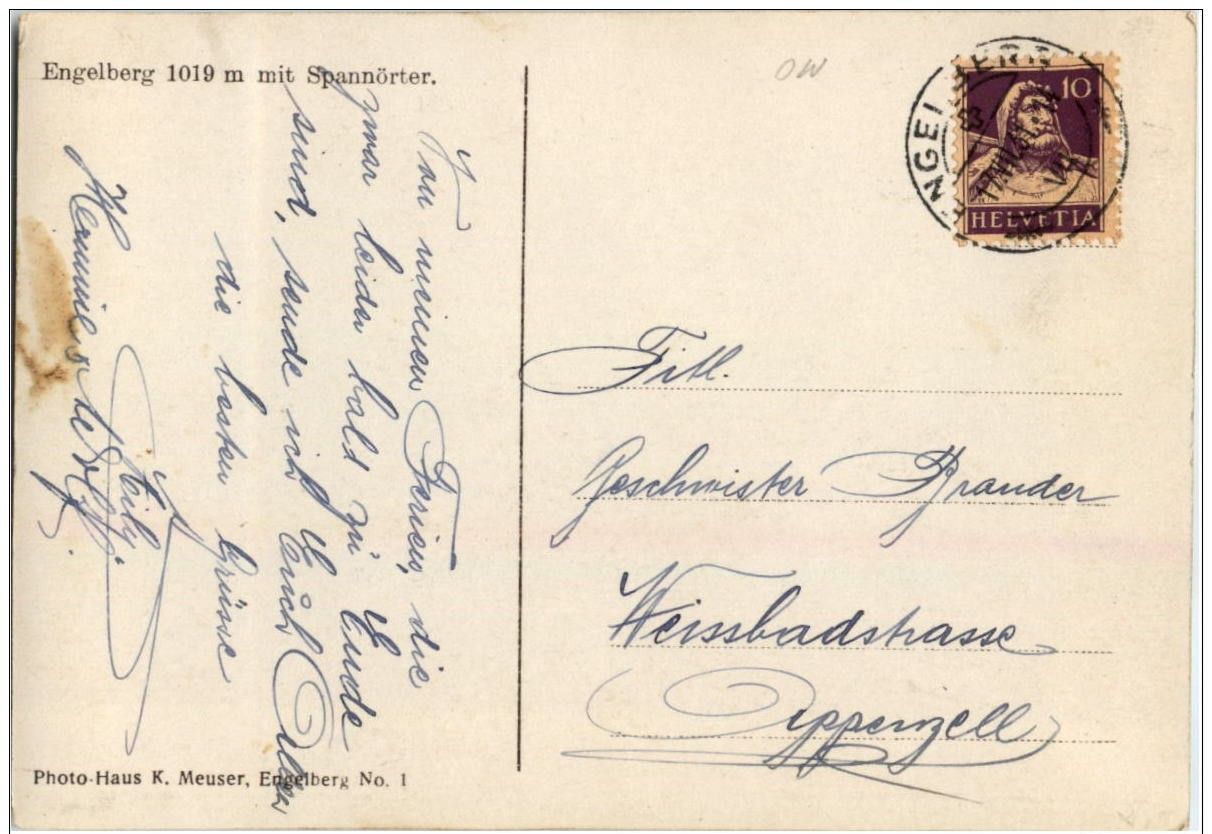 Engelberg 1019 m mit Spannörter.
Von meinen Ferien, die
zwar leider bald zu Ende
sind, sende ich Euch Allen
die besten Grüsse
Cily.
OW
ENGELBERG
10
HELVETIA
Titl.
Geschwister Brander
Weissbadstrasse
Appenzell
Photo-Haus K. Meuser, Engelberg No. 1